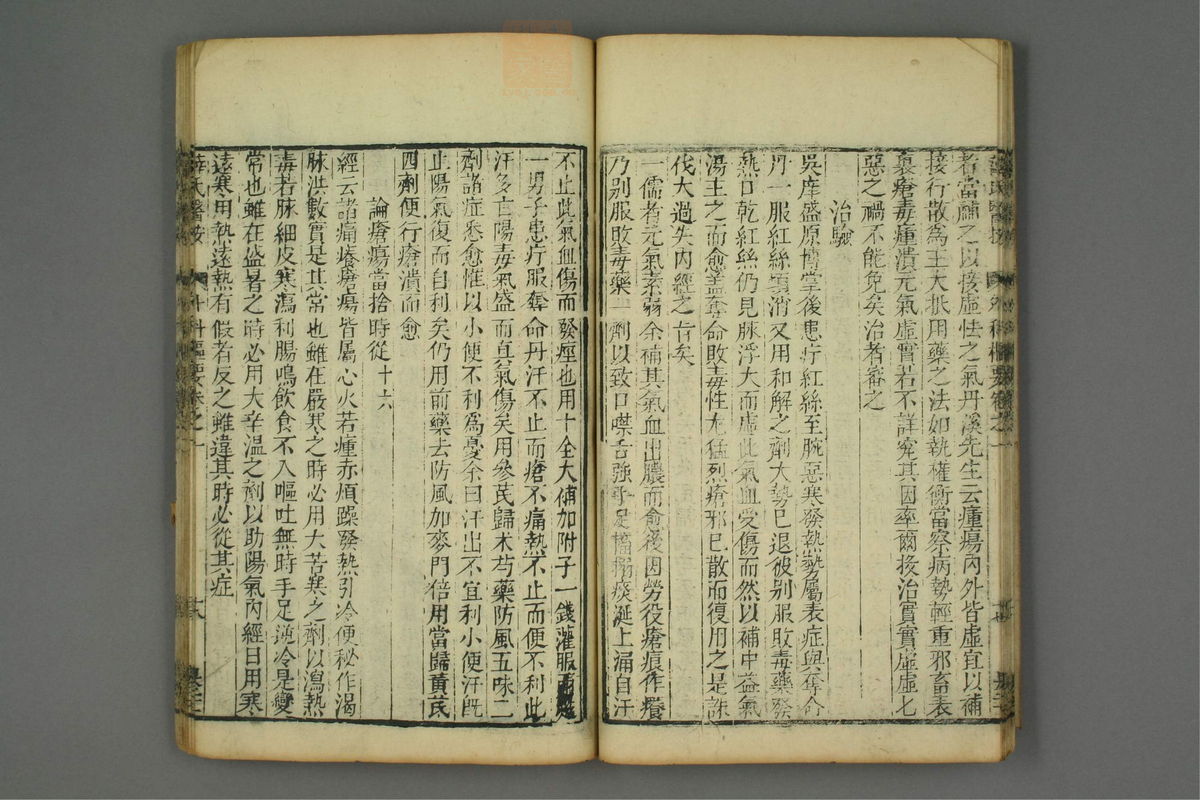 者當補之以接虛怯之氣丹溪先生云瘇瘍內外皆虛宜以補
接行散為主大抵用藥之法如執權衡當察病勢輕重邪畜表
裏瘡毒瘇潰元氣虛實若不詳究其因率爾妄治實實虛虛七
惡之禍不能免矣治者審之
治驗
吳庠盛原博掌後患疔紅絲至腕惡寒發熱勢屬表症與奪命
丹一服紅絲頓消又用和解之劑大勢已退彼別服敗毒藥發
熱口乾紅絲仍見脉浮大而虛此氣血受傷而然以補中益氣
湯主之而愈蓋奪命敗毒性尤猛烈瘡邪已散而復用之是誅
伐太過失內經之旨矣
一儒者元氣素弱余補其氣血出膿而愈後因勞役瘡痕作癢
乃別服敗毒藥二劑以致口噤舌強手足搐搦痰涎上湧自汗
不止此氣血傷而發痙也用十全大補加附子一錢灌服而
一男子患疔服奪命丹汗不止而瘡不痛熱不止而便不利此
汗多亡陽毒氣盛而真氣傷矣用參芪歸术芍藥防風五味二
劑諸症悉愈惟以小便不利為憂余曰汗出不宜利小便汗既
止陽氣復而自利矣仍用前藥去防風加麥門倍用當歸黃芪
四劑便行瘡潰而愈
論瘡瘍當捨時從十六
經云諸痛癢瘡瘍皆屬心火若瘇赤煩躁發熱引冷便秘作渴
脉洪數實是其常也雖在嚴寒之時必用大苦寒之劑以瀉熱
毒若脉細皮寒瀉利腸鳴飲食不入嘔吐無時手足逆冷是變
常也雖在盛暑之時必用大辛溫之劑以助陽氣內經曰用寒
遠寒用熱遠熱有假者反之雖違其時必從其症
薛氏醫按 外科樞要卷之一